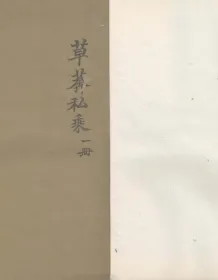 草莽私乘一冊